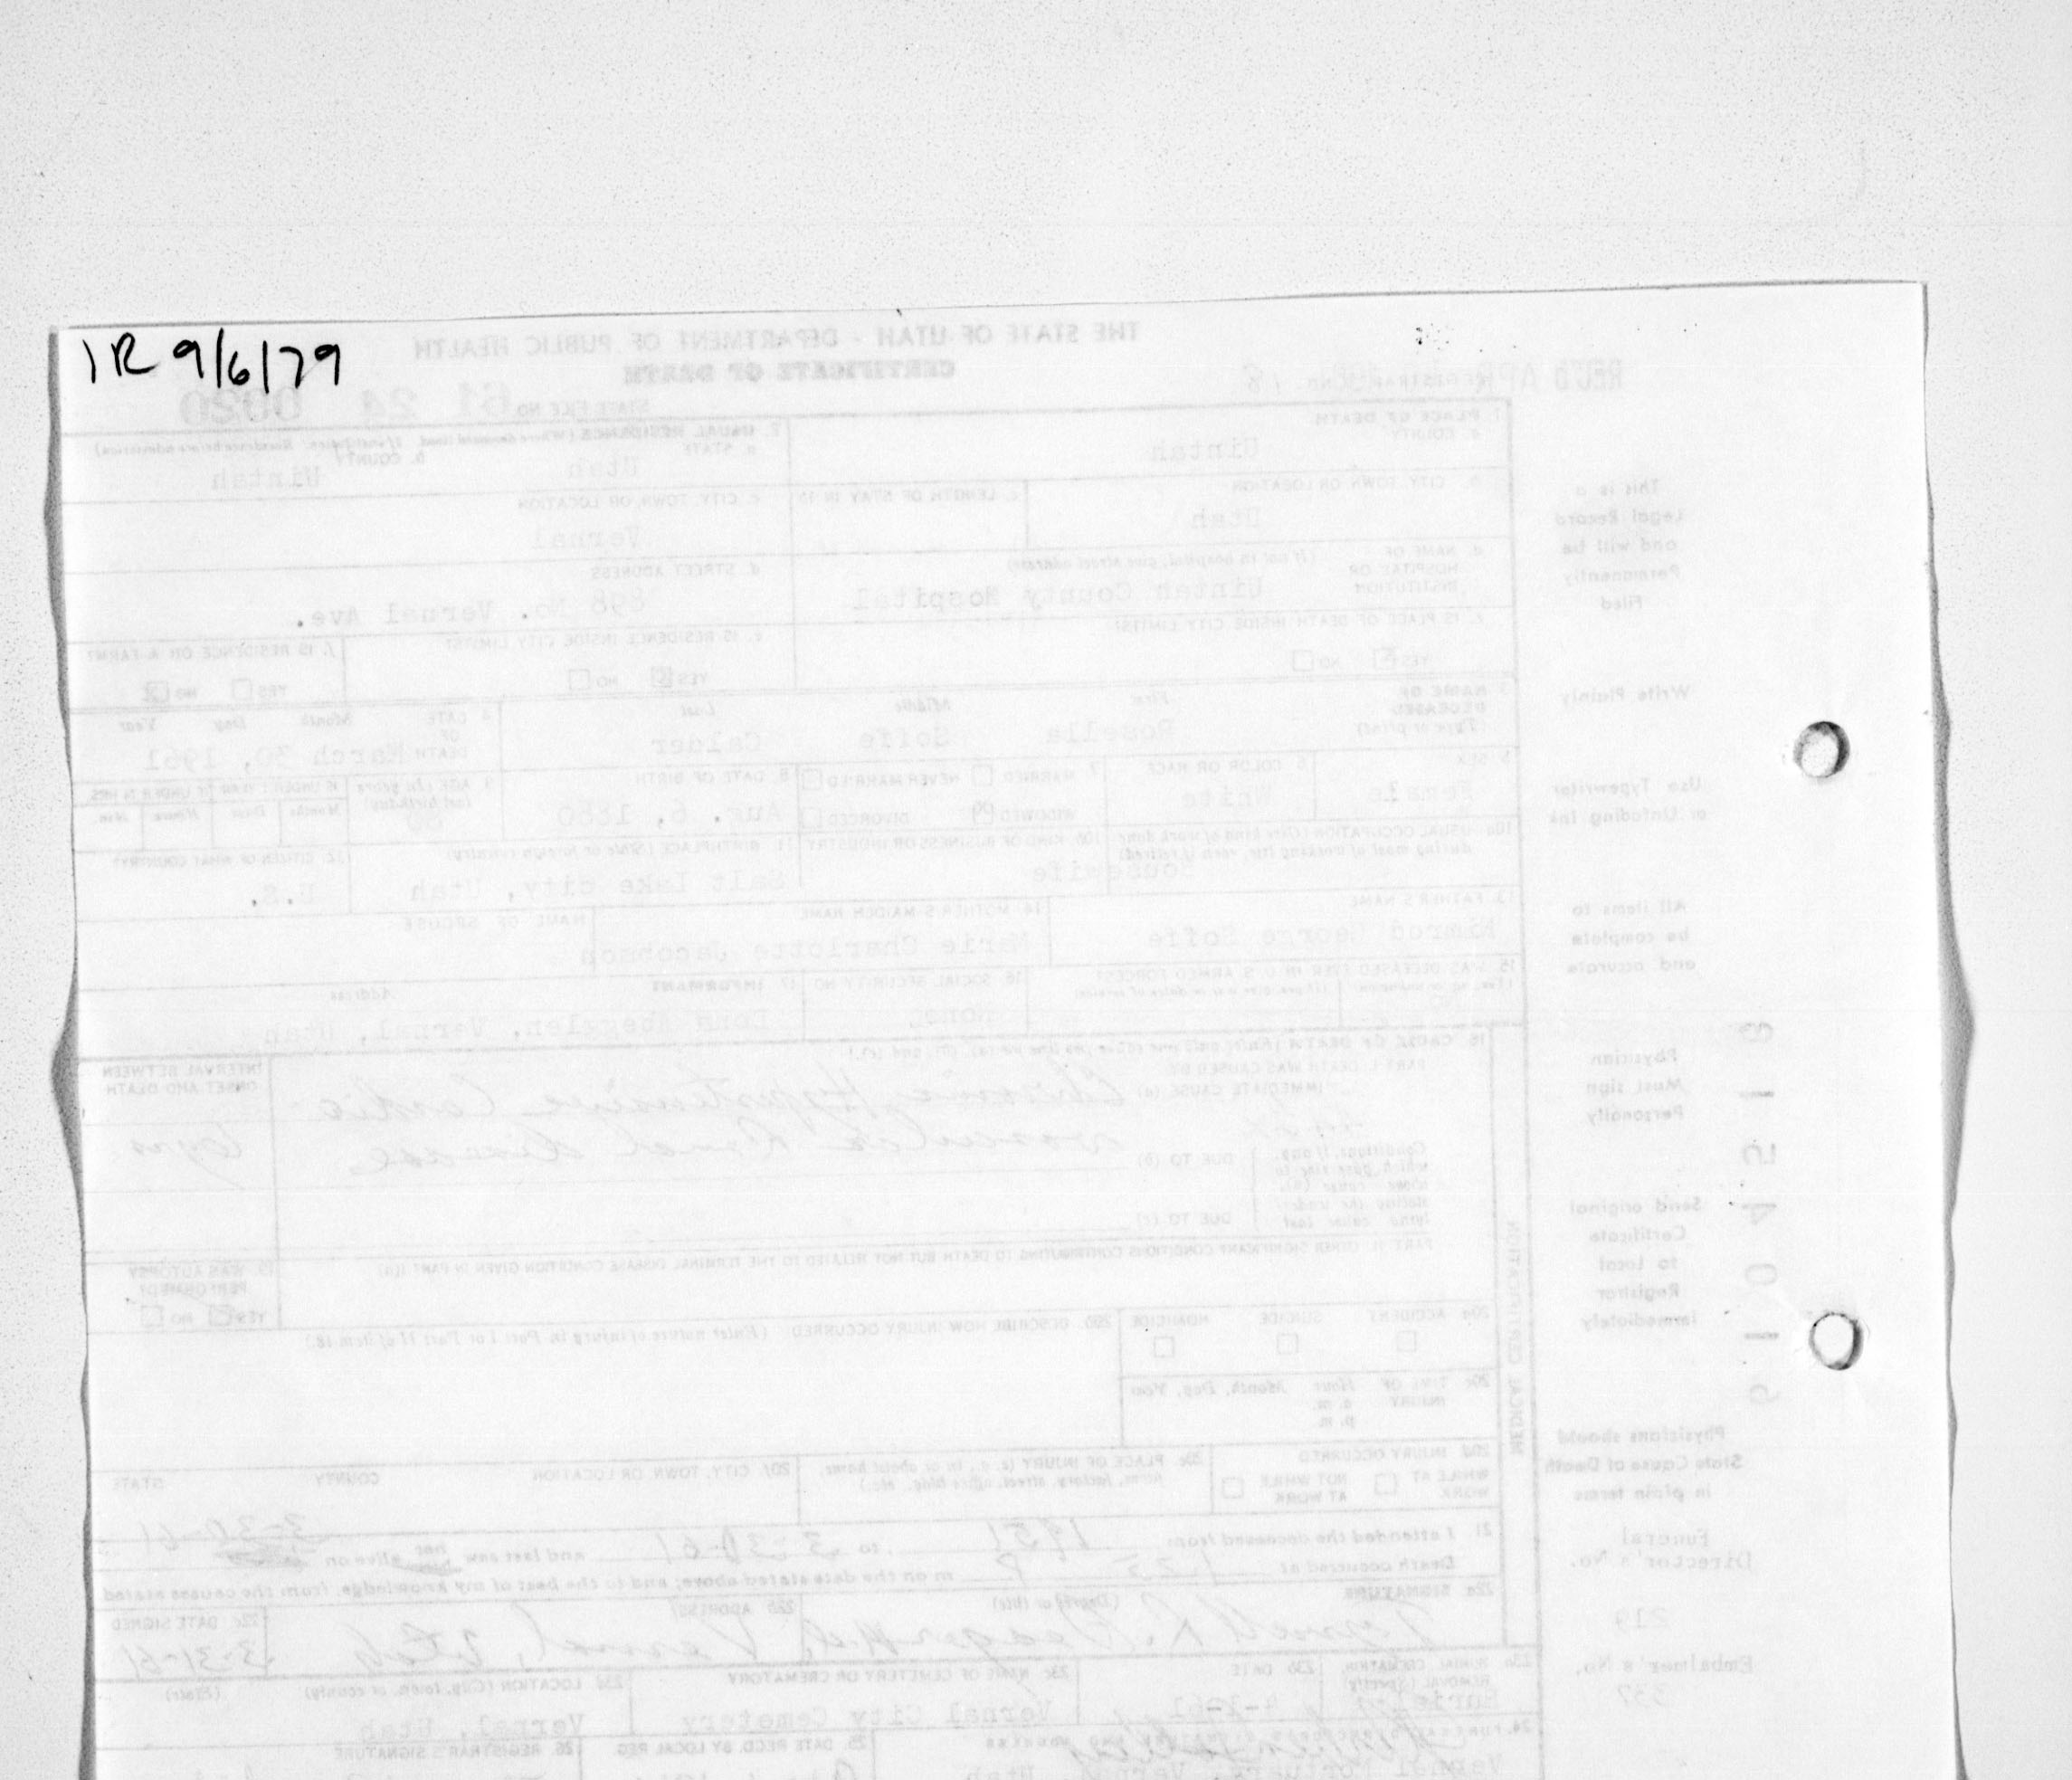 IR 9/6/79
THE STATE OF UTAH - DEPARTMENT OF PUBLIC HEALTH
CERTIFICATE OF DEATH
REC'D APR
REGISTRAR'S NO. 18
STATE FILE NO. 61 24 0020
1. PLACE OF DEATH
a. COUNTY
Uintah
2. USUAL RESIDENCE (Where deceased lived. If institution: Residence before admission)
a. STATE
Utah
b. COUNTY
Uintah
b. CITY, TOWN, OR LOCATION
Utah
c. LENGTH OF STAY IN 1b
c. CITY, TOWN, OR LOCATION
Vernal
d. NAME OF HOSPITAL OR INSTITUTION
(If not in hospital, give street address)
Uintah County Hospital
d. STREET ADDRESS
898 No. Vernal Ave.
e. IS PLACE OF DEATH INSIDE CITY LIMITS?
YES NO
e. IS RESIDENCE INSIDE CITY LIMITS?
YES NO
f. IS RESIDENCE ON A FARM?
YES NO
3. NAME OF DECEASED
(Type or print)
First Middle Last
Rosella Soffe Calder
4. DATE OF DEATH
Month Day Year
March 30, 1961
5. SEX
Female
6. COLOR OR RACE
White
7. MARRIED NEVER MARRIED
WIDOWED DIVORCED
8. DATE OF BIRTH
Aug. 6, 1880
9. AGE (In years last birthday)
80
IF UNDER 1 YEAR
Months Days
IF UNDER 24 HRS.
Hours Min.
10a. USUAL OCCUPATION (Give kind of work done during most of working life, even if retired)
Housewife
10b. KIND OF BUSINESS OR INDUSTRY
11. BIRTHPLACE (State or foreign country)
Salt Lake City, Utah
12. CITIZEN OF WHAT COUNTRY?
U.S.
13. FATHER'S NAME
Nimrod George Soffe
14. MOTHER'S MAIDEN NAME
Marie Charlotte Jacobson
NAME OF SPOUSE
15. WAS DECEASED EVER IN U.S. ARMED FORCES?
(Yes, no, or unknown) (If yes, give war or dates of service)
16. SOCIAL SECURITY NO.
None
17. INFORMANT Address
Vernal, Utah
18. CAUSE OF DEATH (Enter only one cause per line for (a), (b), and (c).)
PART I. DEATH WAS CAUSED BY:
IMMEDIATE CAUSE (a)
Chronic Hypertensive Cardio
vascular Renal disease
INTERVAL BETWEEN ONSET AND DEATH
Conditions, if any, which gave rise to above cause (a), stating the underlying cause last
DUE TO (b)
DUE TO (c)
PART II. OTHER SIGNIFICANT CONDITIONS CONTRIBUTING TO DEATH BUT NOT RELATED TO THE TERMINAL DISEASE CONDITION GIVEN IN PART I(a)
19. WAS AUTOPSY PERFORMED?
YES NO
20a. ACCIDENT SUICIDE HOMICIDE
20b. DESCRIBE HOW INJURY OCCURRED. (Enter nature of injury in Part I or Part II of item 18.)
20c. TIME OF INJURY
Hour Month, Day, Year
a. m.
p. m.
20d. INJURY OCCURRED
WHILE AT WORK NOT WHILE AT WORK
20e. PLACE OF INJURY (e. g., in or about home, farm, factory, street, office bldg., etc.)
20f. CITY, TOWN, OR LOCATION COUNTY STATE
21. I attended the deceased from 1951 to 3-30-61 and last saw her alive on 3-30-61
Death occurred at 1:25 P m on the date stated above; and to the best of my knowledge, from the causes stated
22a. SIGNATURE (Degree or title)
22b. ADDRESS
Vernal, Utah
22c. DATE SIGNED
3-31-61
23a. BURIAL, CREMATION, REMOVAL (Specify)
Burial
23b. DATE
23c. NAME OF CEMETERY OR CREMATORY
Vernal City Cemetery
23d. LOCATION (City, town, or county) (State)
Vernal, Utah
24. FUNERAL DIRECTOR'S SIGNATURE AND ADDRESS
Vernal Mortuary, Vernal, Utah
25. DATE RECD. BY LOCAL REG.
26. REGISTRAR'S SIGNATURE
MEDICAL CERTIFICATION
This is a
Legal Record
and will be
Permanently
Filed
Write Plainly
Use Typewriter
or Unfading Ink
All items to
be complete
and accurate
Physician
Must sign
Personally
Send original
Certificate
to Local
Registrar
Immediately
Physicians should
State Cause of Death
in plain terms
Funeral
Director's No.
219
Embalmer's No.
337